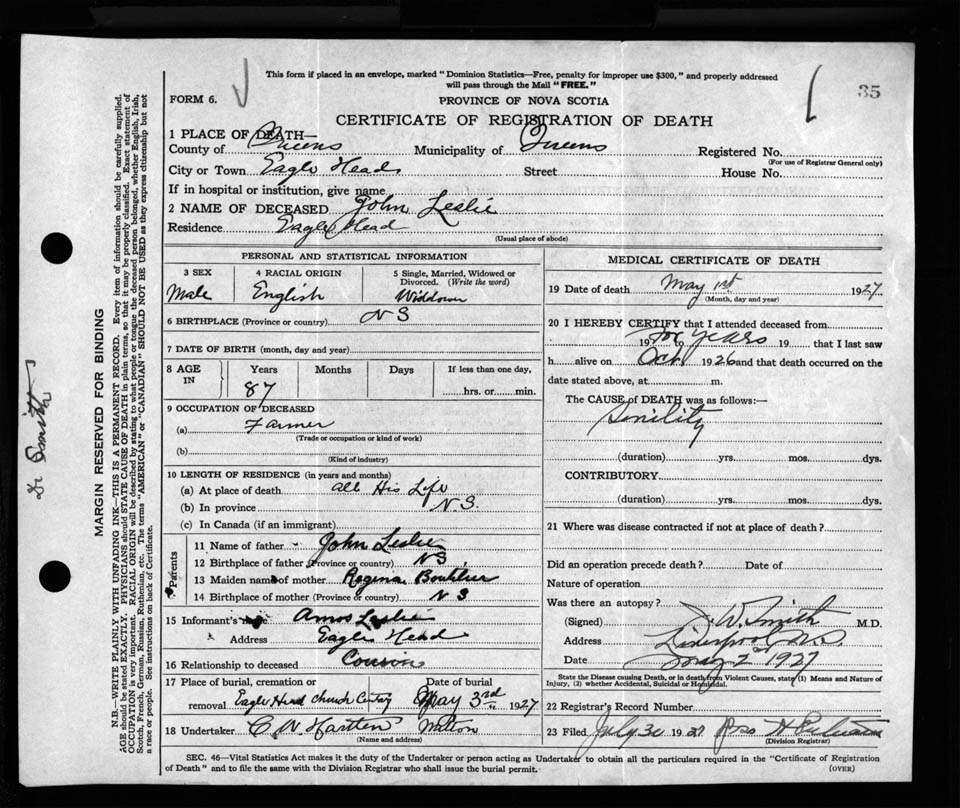 This form if placed in an envelope, marked "Dominion Statistics—Free, penalty for improper use $300," and properly addressed
will pass through the Mail "FREE."
35
FORM 6.
PROVINCE OF NOVA SCOTIA
CERTIFICATE OF REGISTRATION OF DEATH
1 PLACE OF DEATH—
County of Queens Municipality of Queens Registered No.
(For use of Registrar General only)
City or Town Eagle Head Street House No.
If in hospital or institution, give name
2 NAME OF DECEASED John Leslie
Residence Eagle Head
(Usual place of abode)
PERSONAL AND STATISTICAL INFORMATION
3 SEX
Male
4 RACIAL ORIGIN
English
5 Single, Married, Widowed or
Divorced. (Write the word)
Widdower
6 BIRTHPLACE (Province or country) N S
7 DATE OF BIRTH (month, day and year)
8 AGE
IN
Years Months Days If less than one day,
87 hrs. or min.
9 OCCUPATION OF DECEASED
(a) Farmer
(Trade or occupation or kind of work)
(b)
(Kind of industry)
10 LENGTH OF RESIDENCE (in years and months)
(a) At place of death all His Life
(b) In province N.S.
(c) In Canada (if an immigrant)
Parents
11 Name of father John Leslie
12 Birthplace of father (Province or country) N S
13 Maiden name of mother Regina Boutilier
14 Birthplace of mother (Province or country) N S
15 Informant's Amos Leslie
Address Eagle Head
16 Relationship to deceased Cousin
17 Place of burial, cremation or Date of burial
removal Eagle Head Church May 3rd 1927
18 Undertaker Milton
(Name and address)
MEDICAL CERTIFICATE OF DEATH
19 Date of death May 1st 1927
(Month, day and year)
20 I HEREBY CERTIFY that I attended deceased from
19 for to years 19 that I last saw
h alive on Oct 1926 and that death occurred on the
date stated above, at m.
The CAUSE of DEATH was as follows:—
Senility
(duration) yrs. mos. dys.
CONTRIBUTORY
(duration) yrs. mos. dys.
21 Where was disease contracted if not at place of death?
Did an operation precede death? Date of
Nature of operation
Was there an autopsy?
(Signed) J. W. Smith M.D.
Address Liverpool N.S.
Date May 2 1927
State the Disease causing Death, or in death from Violent Causes, state (1) Means and Nature of
Injury, (2) whether Accidental, Suicidal or Homicidal.
22 Registrar's Record Number
23 Filed July 30 1927
(Division Registrar)
SEC. 46—Vital Statistics Act makes it the duty of the Undertaker or person acting as Undertaker to obtain all the particulars required in the "Certificate of Registration
of Death" and to file the same with the Division Registrar who shall issue the burial permit.
(OVER)
Dr Smith
MARGIN RESERVED FOR BINDING
N.B.—WRITE PLAINLY WITH UNFADING INK—THIS IS A PERMANENT RECORD. Every item of information should be carefully supplied.
AGE should be stated EXACTLY. PHYSICIANS should STATE CAUSE OF DEATH in plain terms, so that it may be properly classified. Exact statement of
OCCUPATION is very important. RACIAL ORIGIN will be described by stating to what people or tongue the deceased person belonged, whether English, Irish,
Scotch, French, German, Russian, Ruthenian, etc. The terms "AMERICAN" or "CANADIAN" SHOULD NOT BE USED as they express citizenship but not
a race or people. See instructions on back of Certificate.